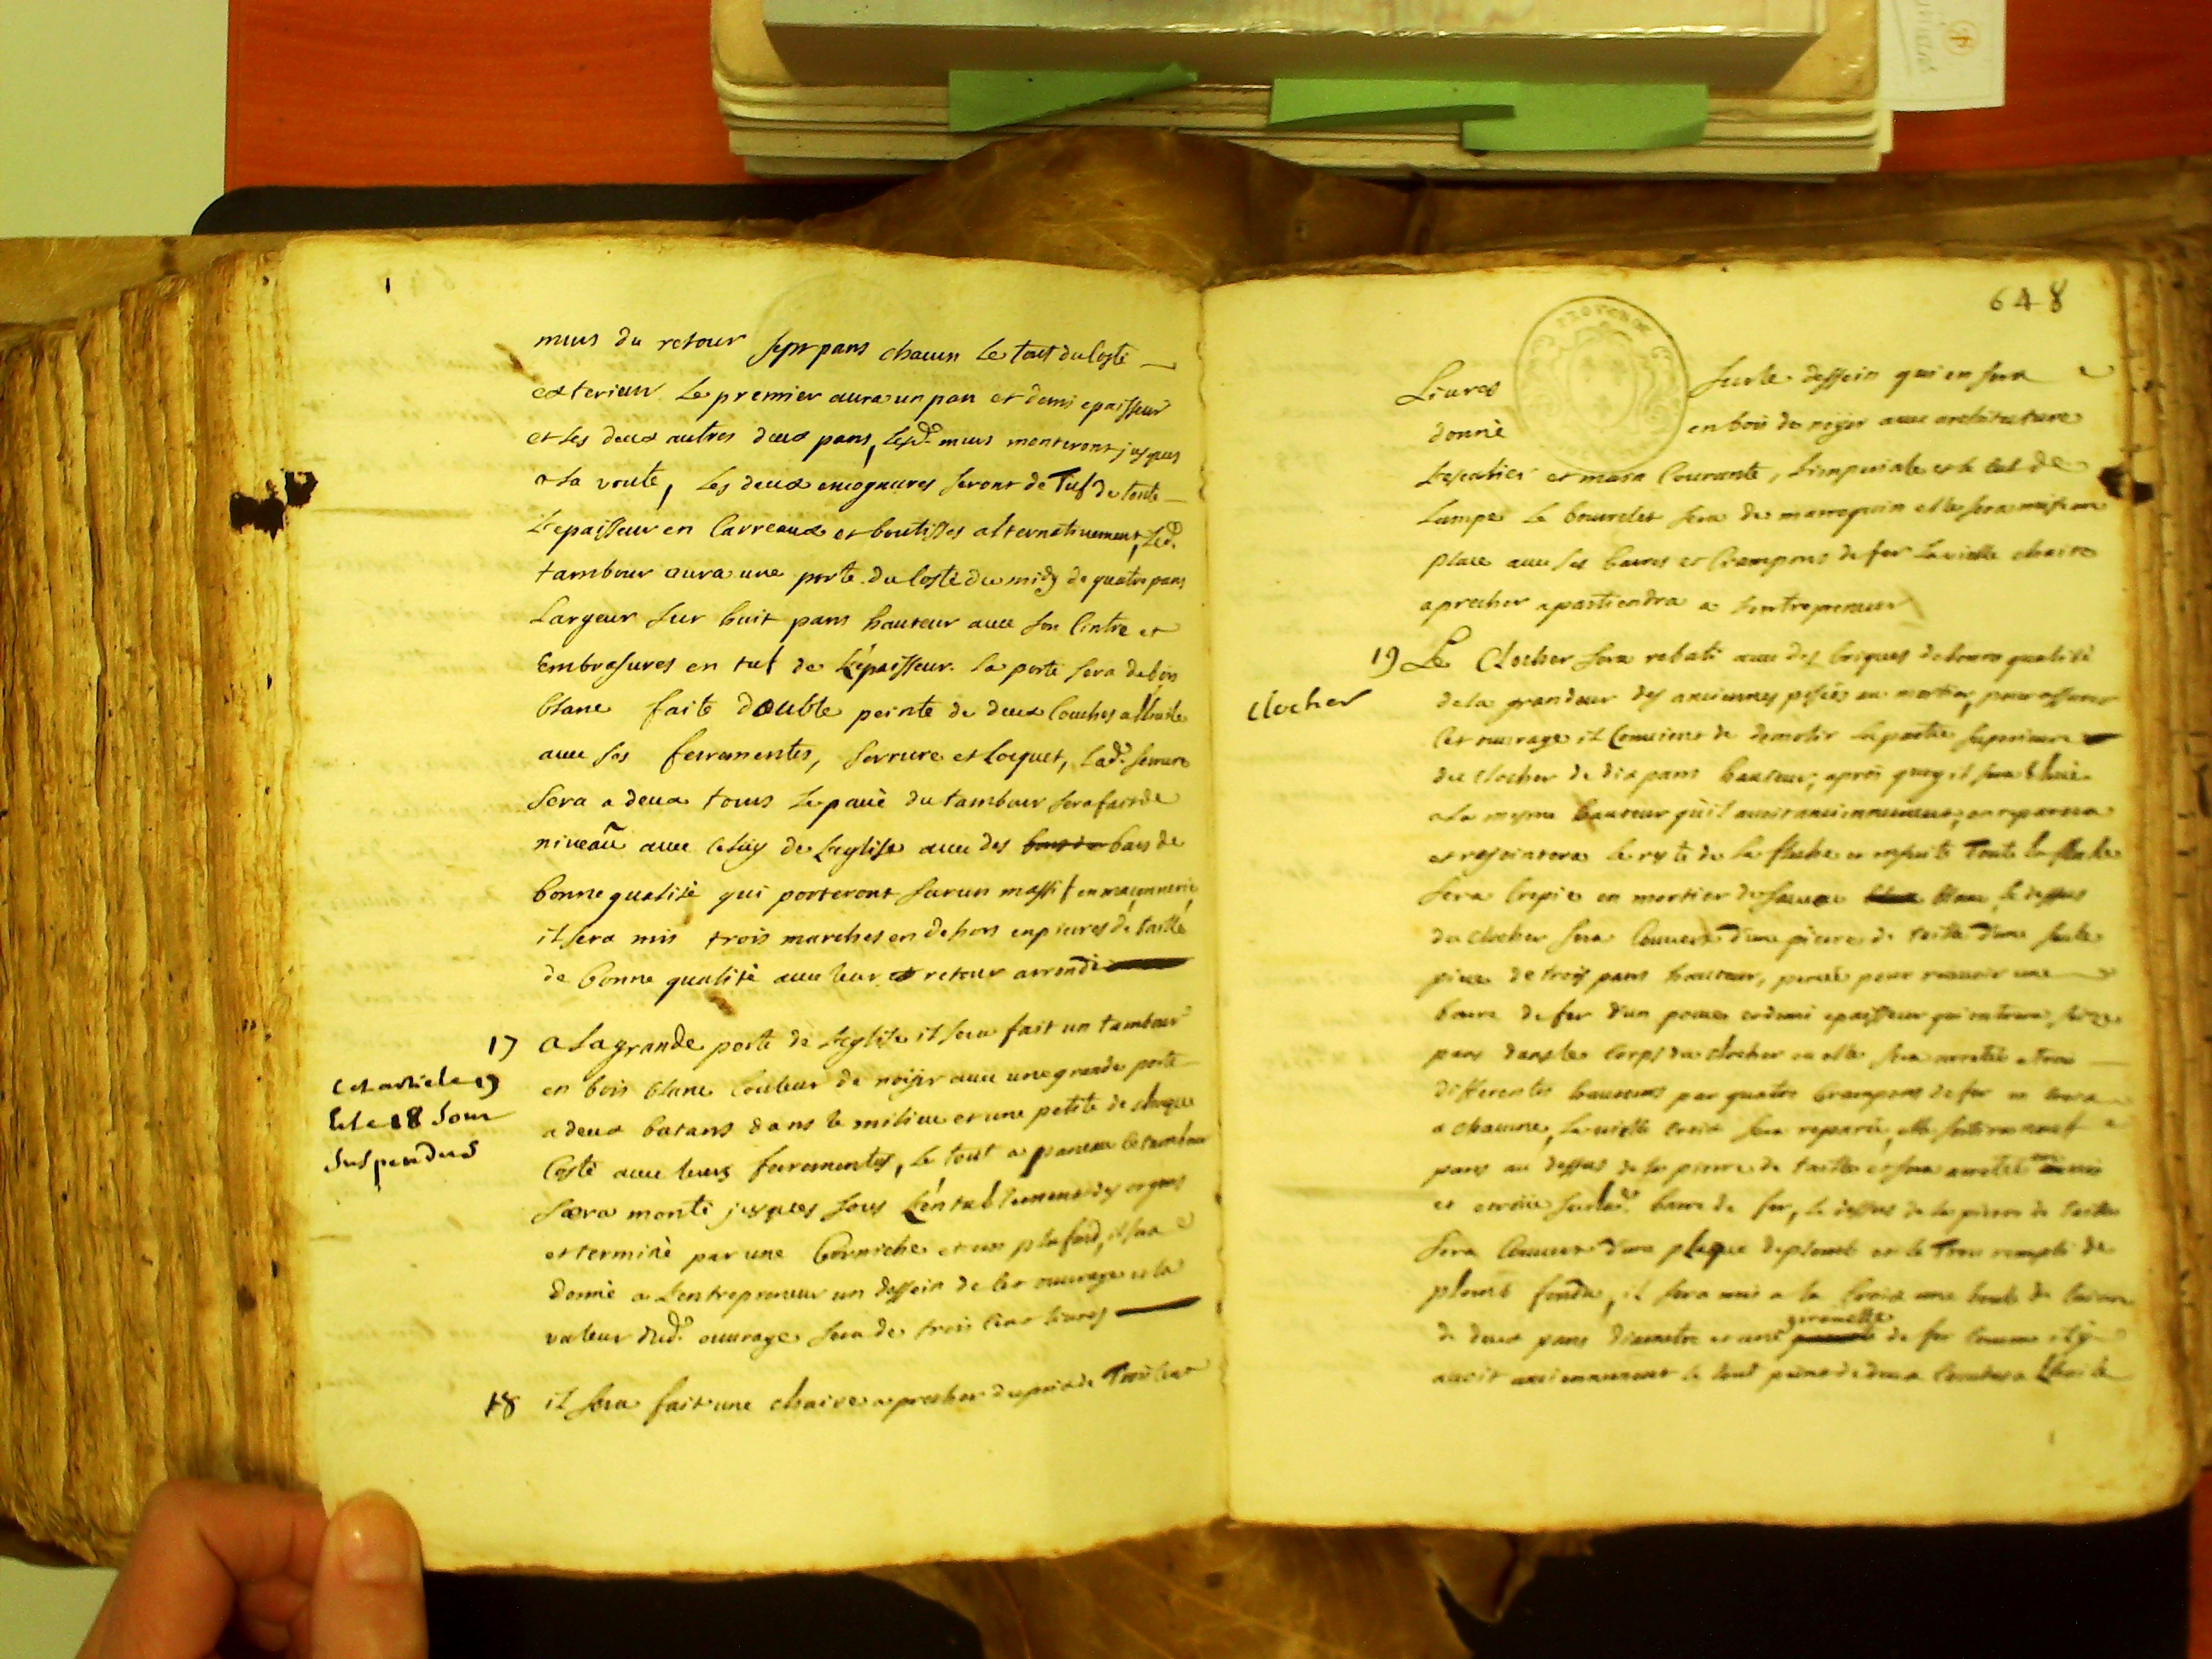 murs du retour sept pans chacun le tout du costé
exterieur le premier aura un pan et demi epaisseur
et les deux autres deux pans, lesd. murs monteront jusques
a la voute, les deux encognures seront de Tuf de toute
L'epaisseur en Carreaux et boutisses alternativement, led.
tambour aura une porte du costé du midy de quatre pans
Largeur sur huit pans hauteur avec son Cintre et
Embrasures en tuf de L'épaisseur la porte sera de bois
blanc faite double peinte de deux Couches a l'huile
avec ses ferrementes, serrure et Loquet, lad. serrure
Sera a deux tours Le pavé du tambour sera fait de
niveau avec celuy de L'eglise avec des bars de
bonne qualité qui porteront sur un massif en maçonnerie,
il sera mis trois marches en dehors en pierres de taille
de bonne qualité avec leur retour arrondi
17 a La grande porte de L'eglise il sera fait un tambour
Cet article 17
et le 18 sont
suspendus
en bois blanc Couleur de noyer avec une grande porte
a deux batans dans le milieu et une petite de chaque
Costé avec leurs ferrementes, le tout a paneau le tambour
Sera monté jusques sous L'entablement des orgues
et terminé par une Corniche et un plafond, il sera
donné a L'entrepreneur un dessein de Cet ouvrage et la
valeur dud. ouvrage sera de trois Cent livres
18 il sera fait une chaire a precher du prix de Trois Cent
648
PROVENCE
Livres sur le dessein qui en sera
donné en bois de noyer avec architecture
L'escalier et main Courante, L'imperiale et le cul de
Lampe Le bourrelet sera de marroquin elle sera mise en
place avec ses barres et Crampons de fer La vielle chaire
a precher apartiendra a L'entrepreneur
19 Le Clocher sera rebati avec des briques de bonne qualité
Clocher
de la grandeur des anciennes posées au mortier, pour assurer
Cet ouvrage il Convient de demolir la partie superieure
du Clocher de dix pans hauteur, après quoy il sera
a la mesme hauteur qu'il avoit anciennement, on reparera
et rejointera le reste de la fleche en ensuite Toute la fleche
sera Crepie en mortier de blanc, le dessus
du clocher sera Couvert d'une pierre de taille d'une seule
piece de trois pans hauteur, percée pour recevoir une
barre de fer d'un pouce et demi epaisseur qui entrera
pans dans le Corps du clocher ou elle sera arretée a trois
differentes hauteurs par quatre Crampons de fer
a chacune, La vielle Croix sera reparée, elle
pans au dessus de la pierre de taille et sera arretée
et barre de fer, le dessus de la pierre de taille
Sera Couvert d'une plaque de plomb et le Trou rempli de
plomb fondu, il sera mis a la Croix une boule de
girouette
de deux pans diametre et une de fer Comme il y
avoit anciennement le tout peint de deux Couches a L'huile